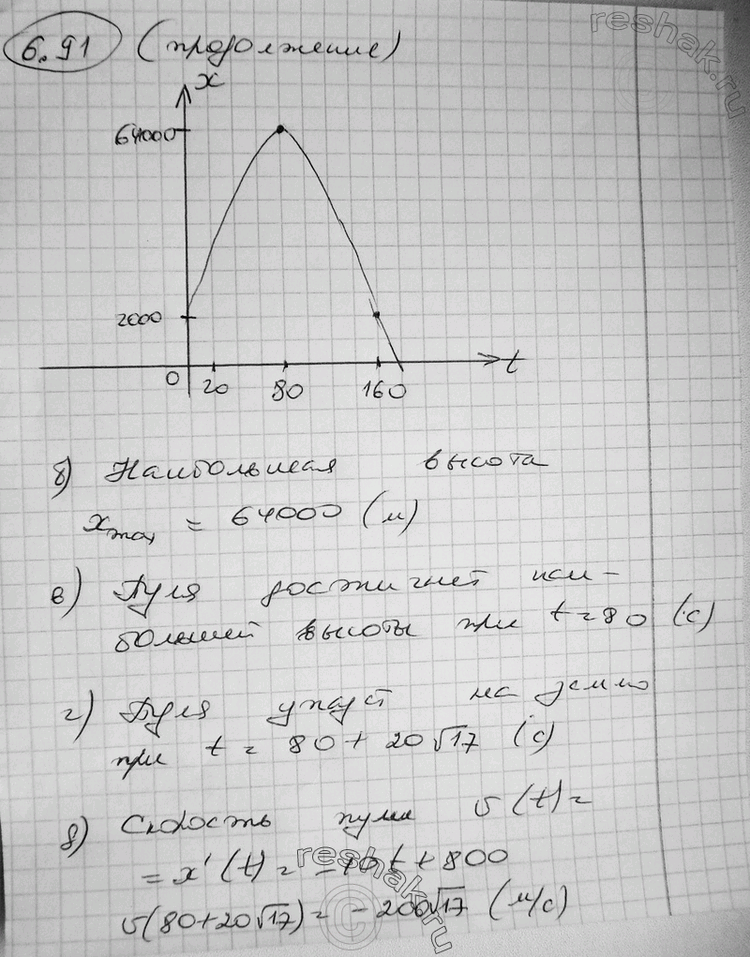 6.91 (продолжение)
x
64000
2000
0 20 80 160 t
б) Наибольшая высота
xmax = 64000 (м)
в) Пуля достигнет наи-
большей высоты при t = 80 (с)
г) Пуля упадёт на землю
при t = 80 + 20√17 (с)
д) Скорость пули v(t) =
= x'(t) = -10t + 800
v(80+20√17) = -200√17 (м/с)
reshak.ru
reshak.ru
reshak.ru